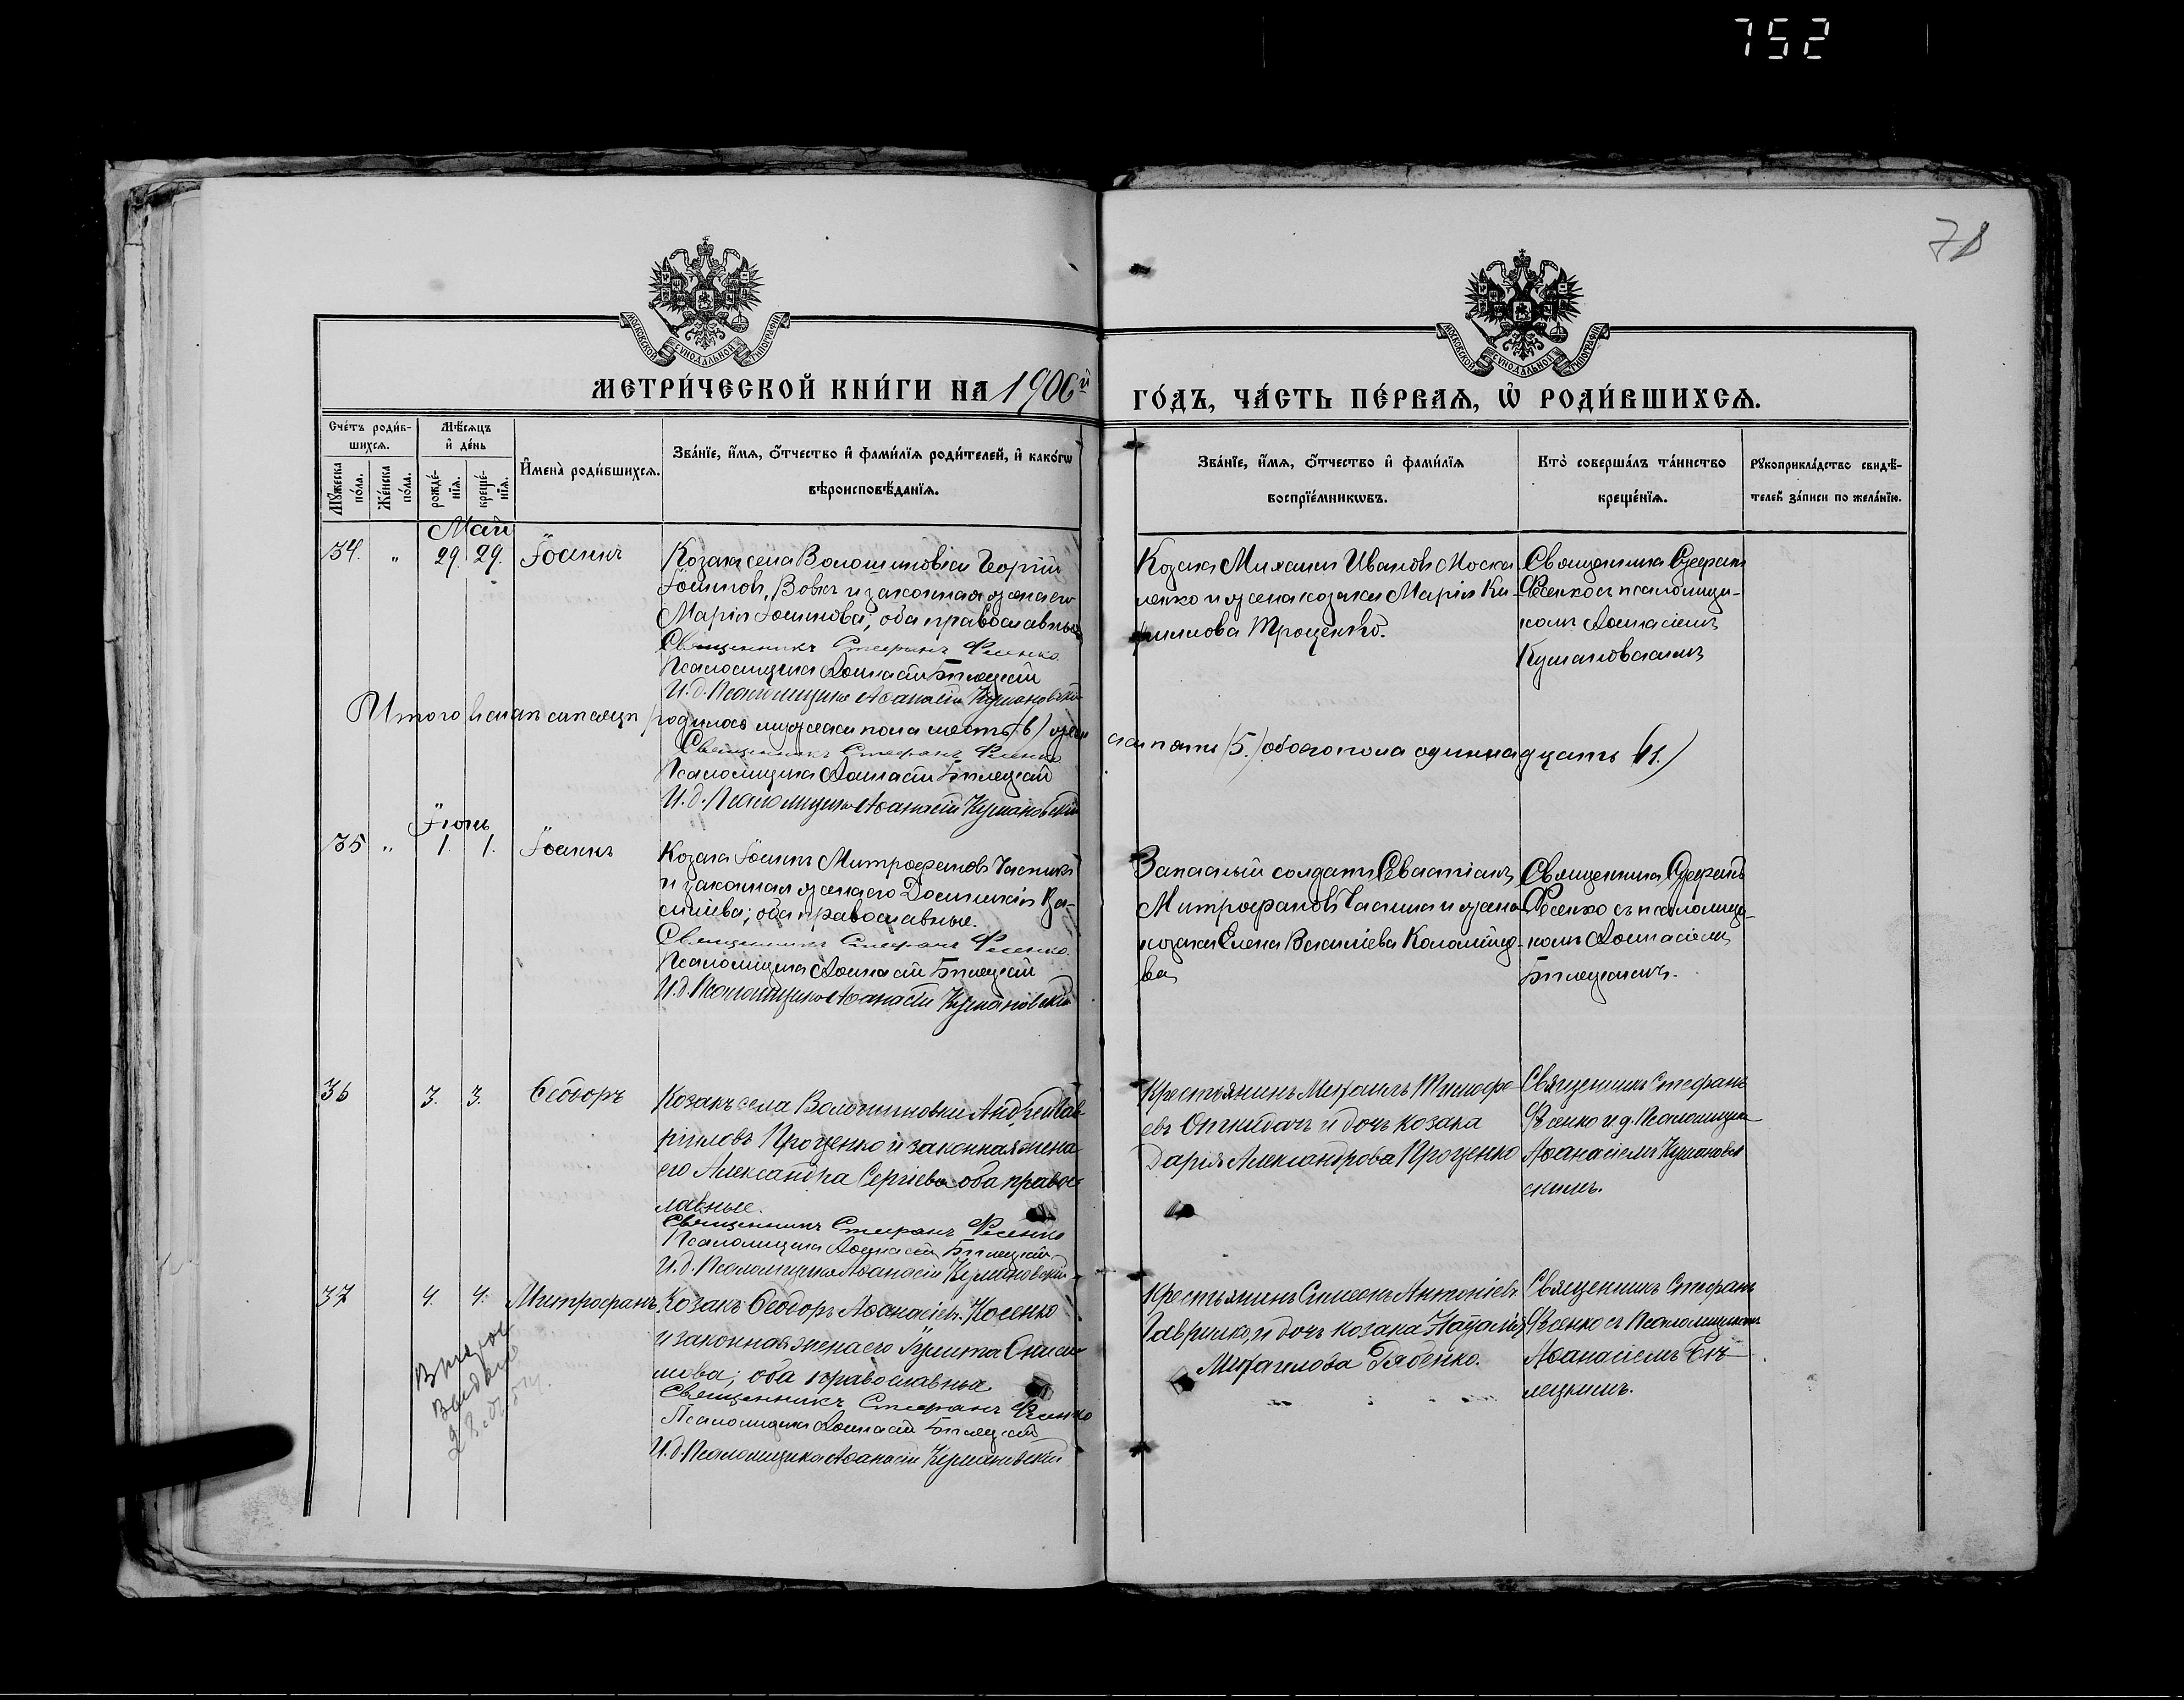 752
78
МОСКОВСКОЙ СѴНОДАЛЬНОЙ ТИПОГРАФІИ
МОСКОВСКОЙ СѴНОДАЛЬНОЙ ТИПОГРАФІИ
МЕТРИ́ЧЕСКОЙ КНИ́ГИ НА 1906й
ГО́ДЪ, ЧА́СТЬ ПЕ́РВАѦ, Ѡ҆ РОДИ́ВШИХСѦ.
Сче́тъ роди́в-
шихсѧ.
Мꙋ́жеска по́ла.
Же́нска по́ла.
Мѣ́сѧцъ
и҆ де́нь
рожде́-
нїѧ.
креще́-
нїѧ.
И҆мена̀ роди́вшихсѧ.
Зва́нїе, и҆́мѧ, ѻ҆́тчество и҆ фами́лїѧ роди́телей, и҆ како́гѡ
вѣроисповѣ́данїѧ.
Зва́нїе, и҆́мѧ, ѻ҆́тчество и҆ фами́лїѧ
воспрїе́мникѡвъ.
Кто̀ соверша́лъ та́инство
креще́нїѧ.
Рꙋкоприкла́дство свидѣ́-
телей за́писи по жела́нїю.
Май
34. " 29. 29. Іоаннъ
Козакъ села Волошиновки Георгій
Іоанновъ Вовкъ и законная жена его
Марія Іоаннова, оба православные
Священникъ Стефанъ Ѳесенко
Псаломщикъ Аѳанасій Бѣлецкій
И. д. Псаломщика Аѳанасій Кумановскій
Козакъ Михаилъ Ивановъ Моска-
ленко и жена козака Марія Ки-
риллова Троценко.
Священникъ Стефанъ
Ѳесенко съ псаломщи-
комъ Аѳанасіемъ
Кумановскимъ
Итого въ маѣ мѣсяцѣ родилось мужеска пола шесть (6) жен
ска пять (5.) обоего пола одиннадцать (11.)
Священникъ Стефанъ Ѳесенко
Псаломщикъ Аѳанасій Бѣлецкій
И. д. Псаломщика Аѳанасій Кумановскій
Іюнь
35 " 1. 1. Іоаннъ
Козакъ Іоаннъ Митрофановъ Часникъ
и законная жена его Домникія Ва-
силіева; оба православные.
Священникъ Стефанъ Ѳесенко.
Псаломщикъ Аѳанасій Бѣлецкій
И. д. Псаломщика Аѳанасій Кумановскій
Запасный солдатъ Севастіанъ
Митрофановъ Часникъ и жена
козака Елена Василіева Коломійце-
ва
Священникъ Стефанъ
Ѳесенко съ псаломщи-
комъ Аѳанасіемъ
Бѣлецкимъ.
36 3. 3. Ѳеодоръ
Козакъ села Волошиновки Андрей Гав-
ріиловъ Проценко и законная жена
его Александра Сергіева оба право-
славные.
Священникъ Стефанъ Ѳесенко
Псаломщикъ Аѳанасій Бѣлецкій
И. д. Псаломщика Аѳанасій Кумановскій
Крестьянинъ Михаилъ Тимофе-
евъ и дочь козака
Дарія Александрова Проценко
Священникъ Стефанъ
Ѳесенко и д. Псаломщика
Аѳанасіемъ Кумановск
скимъ.
37 4. 4. Митрофанъ
Козакъ Ѳеодоръ Аѳанасіевъ Косенко
и законная жена его Іулитта Ониси-
мова; оба православные
Священникъ Стефанъ Ѳесенко
Псаломщикъ Аѳанасій Бѣлецкій
И. д. Псаломщика Аѳанасій Кумановскій
Крестьянинъ Симеонъ Антоніевъ
Гаврилко и дочь козака Наталія
Михаилова Бабенко.
Священникъ Стефанъ
Ѳесенко съ Псаломщикомъ
Аѳанасіемъ Бѣ-
лецкимъ.